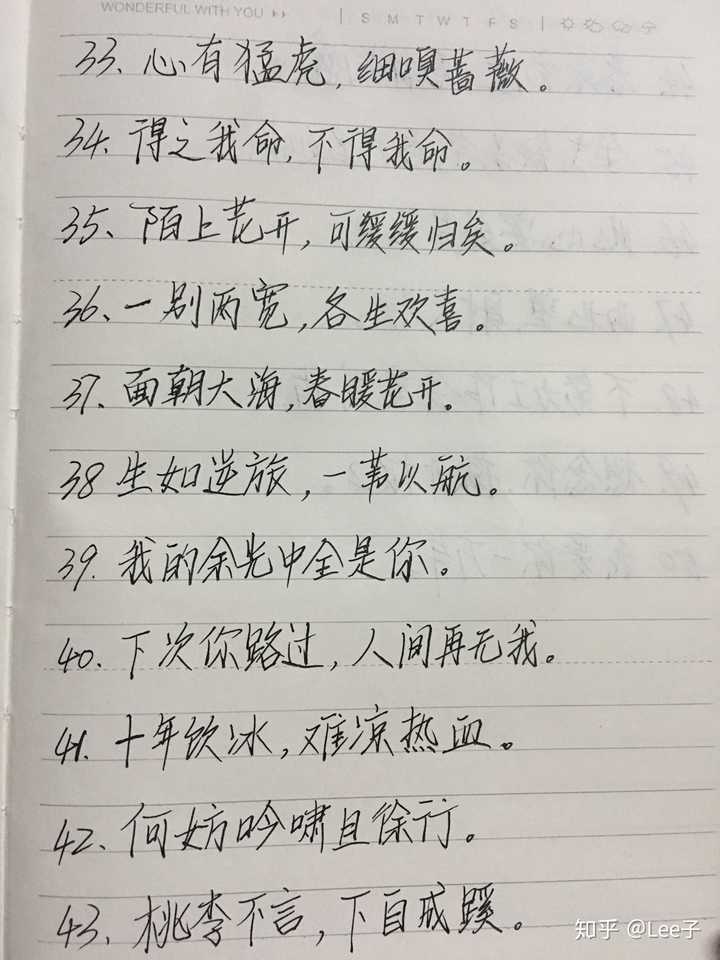 WONDERFUL WITH YOU
S M T W T F S
33、心有猛虎,细嗅蔷薇。
34.得之我命,不得我命。
35、陌上花开,可缓缓归矣。
36、一别两宽,各生欢喜。
37、面朝大海,春暖花开。
38 生如逆旅,一苇以航。
39.我的余光中全是你。
40.下次你路过,人间再无我。
41.十年饮冰,难凉热血。
42.何妨吟啸且徐行。
43、桃李不言,下自成蹊。
知乎 @Lee子